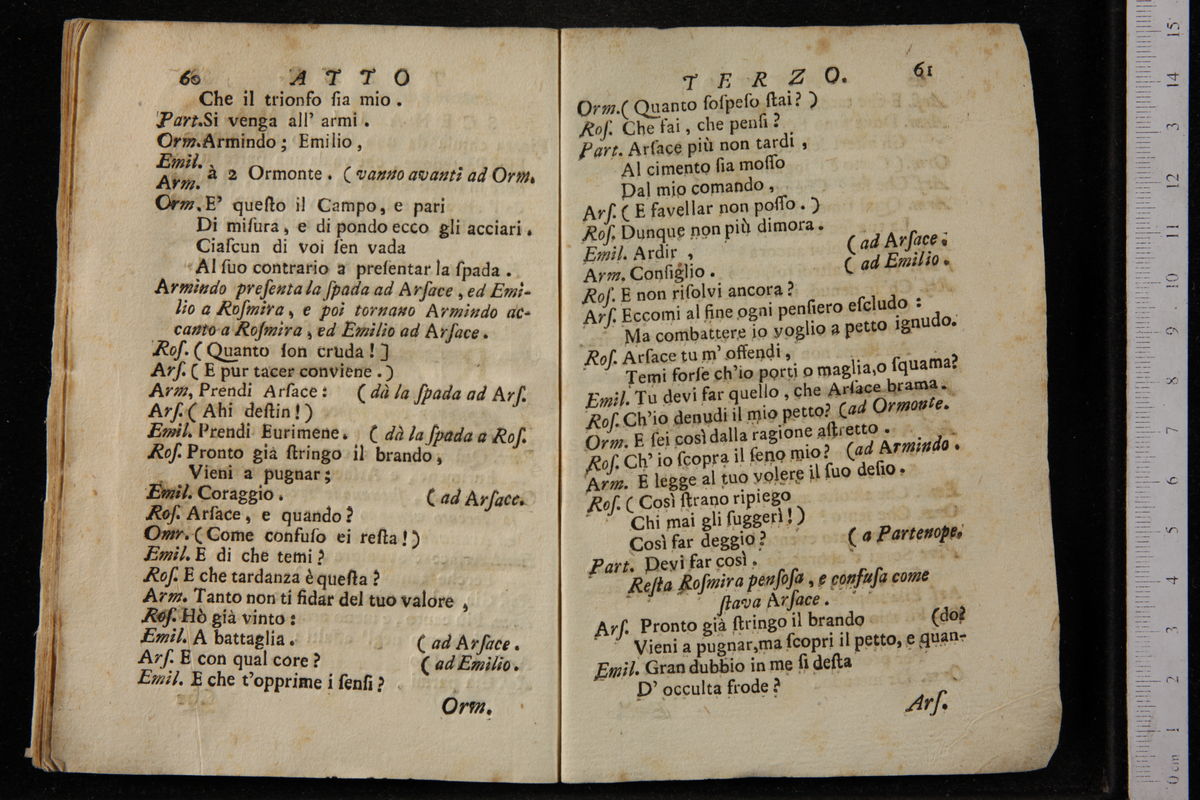 60 ATTO
Che il trionfo ſia mio.
Part. Si venga all' armi.
Orm. Armindo; Emilio,
Emil.
Arm. à 2 Ormonte. (vanno avanti ad Orm.
Orm. E' queſto il Campo, e pari
Di miſura, e di pondo ecco gli acciari.
Ciaſcun di voi ſen vada
Al ſuo contrario a preſentar la ſpada.
Armindo preſenta la ſpada ad Arſace, ed Emi-
lio a Roſmira, e poi tornano Armindo ac-
canto a Roſmira, ed Emilio ad Arſace.
Roſ. (Quanto ſon cruda!]
Arſ. (E pur tacer conviene.)
Arm, Prendi Arſace: (dà la ſpada ad Arſ.
Arſ. (Ahi deſtin!)
Emil. Prendi Eurimene. (dà la ſpada a Roſ.
Roſ. Pronto già ſtringo il brando,
Vieni a pugnar;
Emil. Coraggio. (ad Arſace.
Roſ. Arſace, e quando?
Omr. (Come confuſo ei reſta!)
Emil. E di che temi?
Roſ. E che tardanza è queſta?
Arm. Tanto non ti fidar del tuo valore,
Roſ. Hò già vinto:
Emil. A battaglia. (ad Arſace.
Arſ. E con qual core? (ad Emilio.
Emil. E che t'opprime i ſenſi?
Orm.
TERZO. 61
Orm. (Quanto ſoſpeſo ſtai?)
Roſ. Che fai, che penſi?
Part. Arſace più non tardi,
Al cimento ſia moſſo
Dal mio comando,
Arſ. (E favellar non poſſo.)
Roſ. Dunque non più dimora.
Emil. Ardir, (ad Arſace.
Arm. Conſiglio. (ad Emilio.
Roſ. E non riſolvi ancora?
Arſ. Eccomi al fine ogni penſiero eſcludo:
Ma combattere io voglio a petto ignudo.
Roſ. Arſace tu m' offendi,
Temi forſe ch'io porti o maglia, o ſquama?
Emil. Tu devi far quello, che Arſace brama.
Roſ. Ch'io denudi il mio petto? (ad Ormonte.
Orm. E ſei così dalla ragione aſtretto.
Roſ. Ch' io ſcopra il ſeno mio? (ad Armindo.
Arm. E legge al tuo volere il ſuo deſio.
Roſ. (Così ſtrano ripiego
Chi mai gli ſuggerì!)
Così far deggio? (a Partenope.
Part. Devi far così.
Reſta Roſmira penſoſa, e confuſa come
ſtava Arſace.
Arſ. Pronto già ſtringo il brando (do?
Vieni a pugnar, ma ſcopri il petto, e quan-
Emil. Gran dubbio in me ſi deſta
D' occulta frode?
Arſ.
0 cm 1 2 3 4 5 6 7 8 9 10 11 12 13 14 15